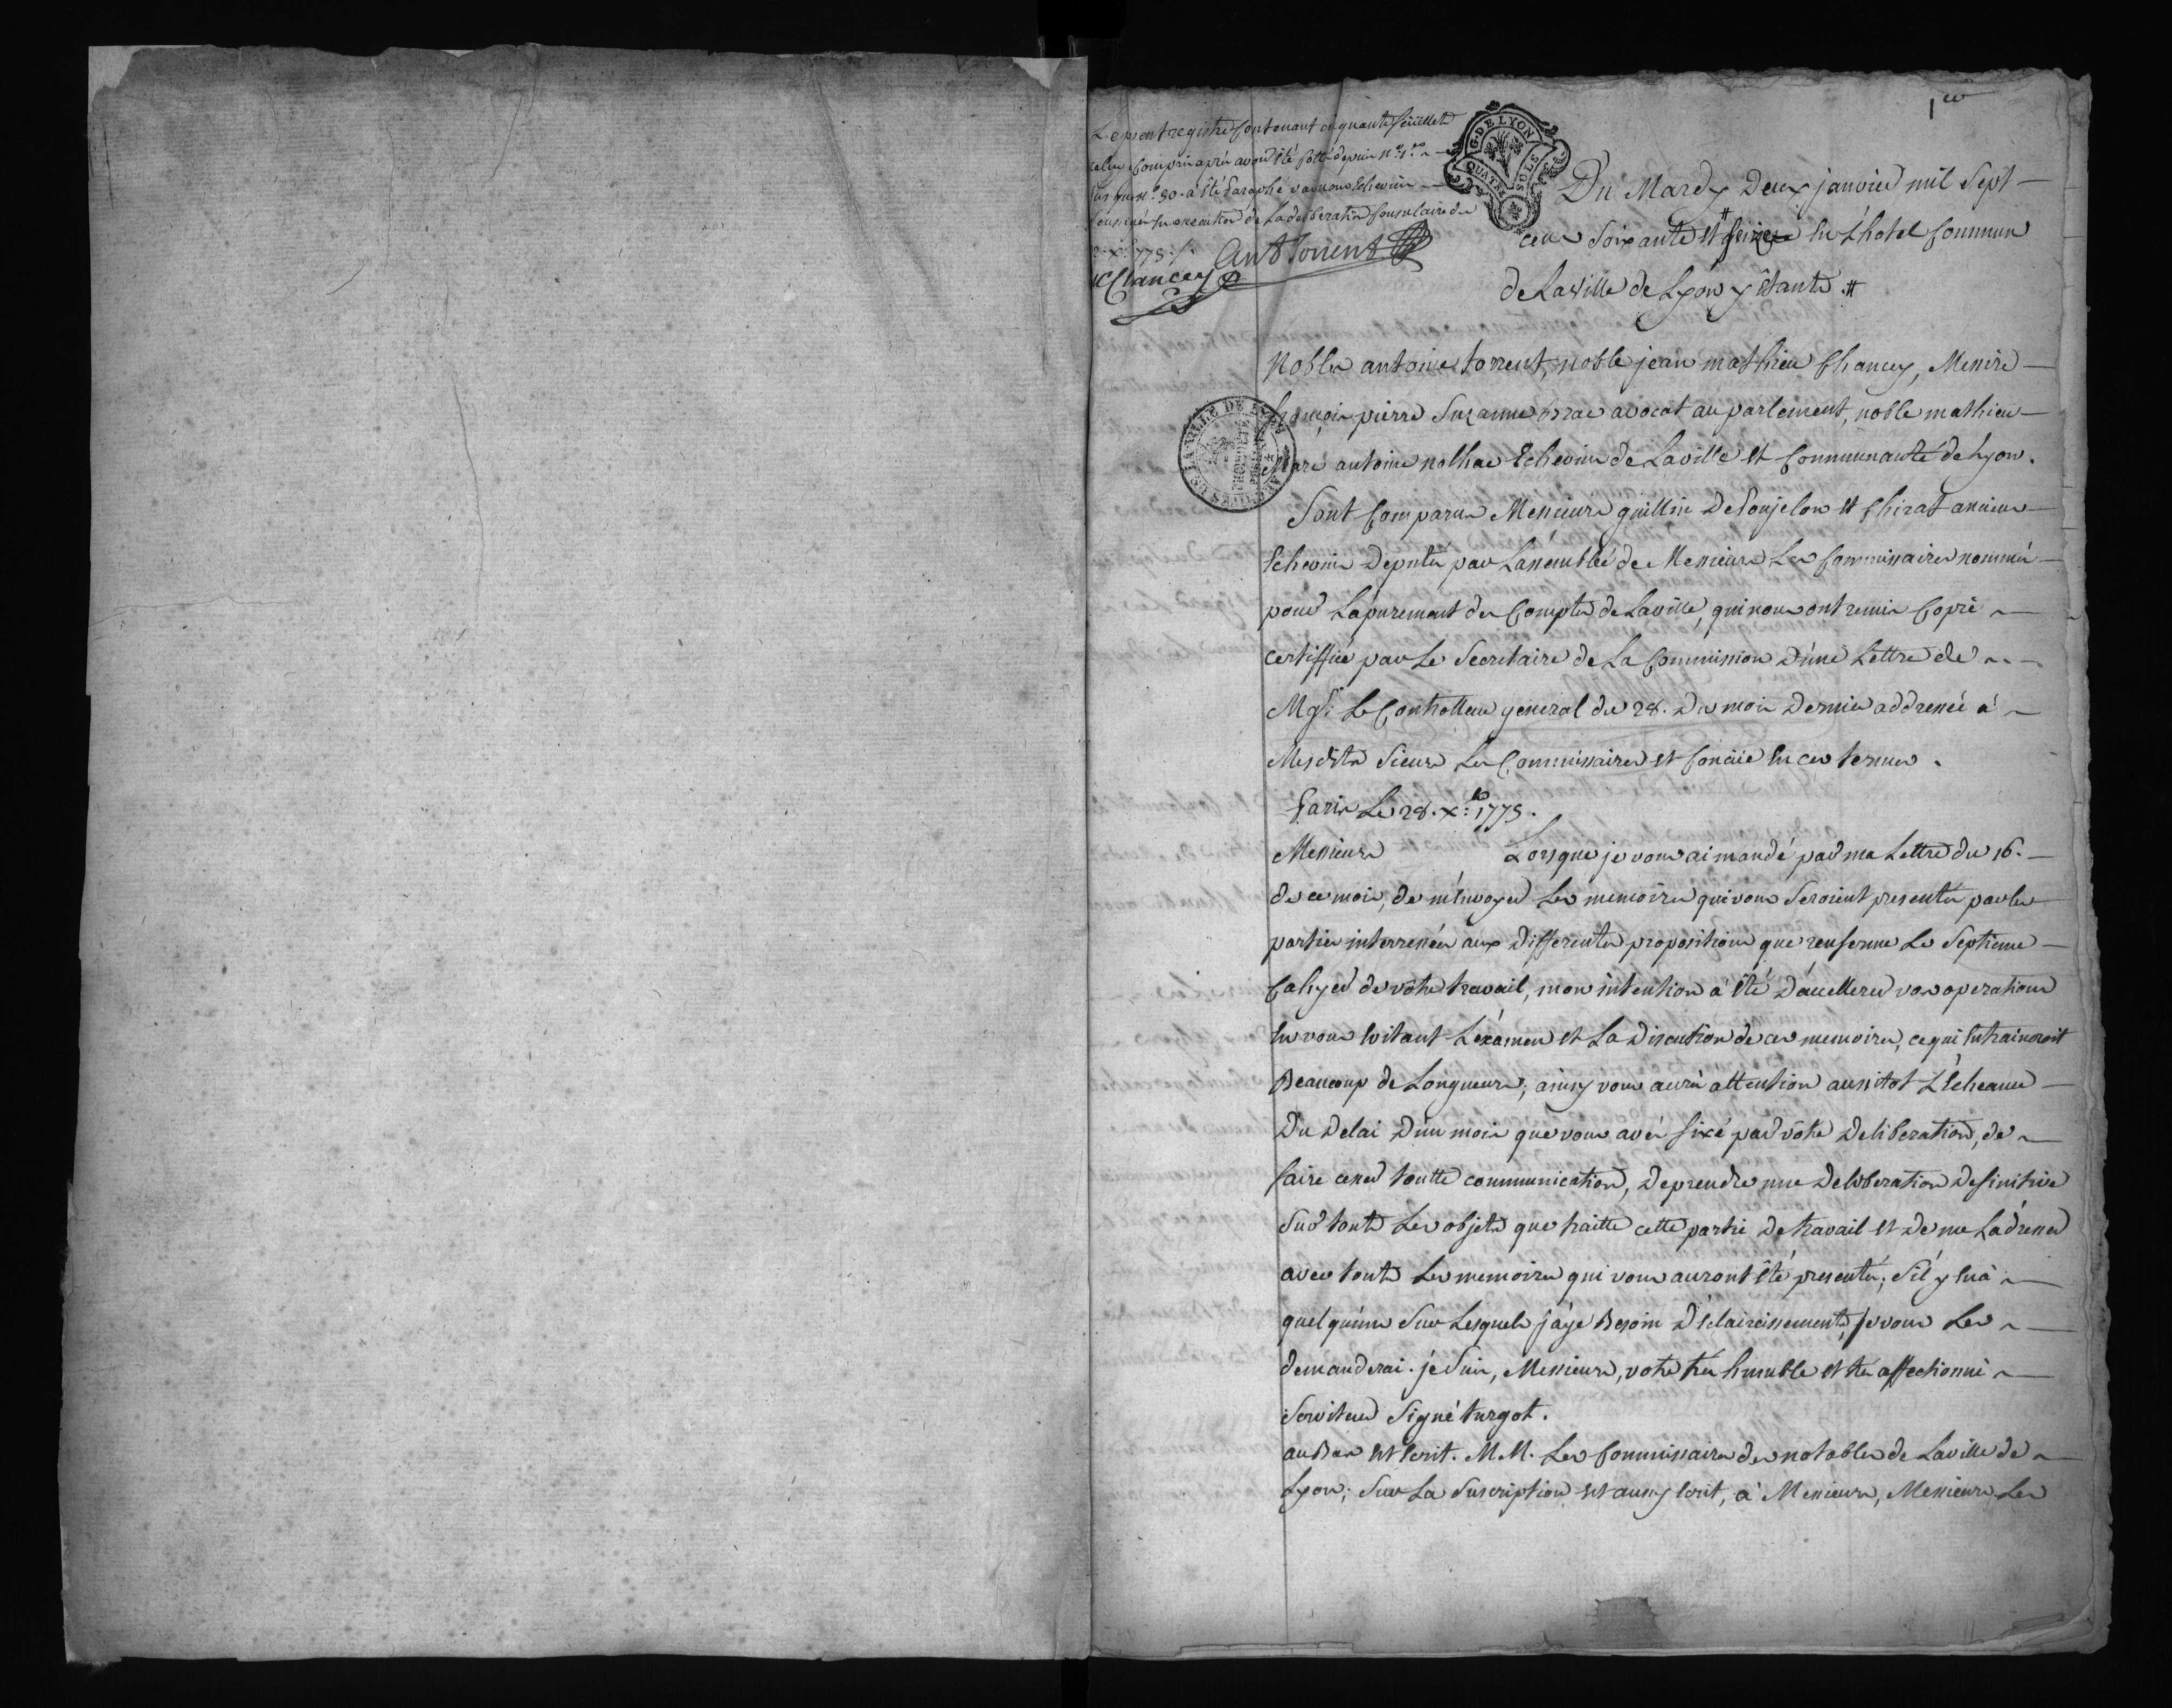 1er
Le present registre Contenant cinquante feüillets
celuy Compris aprés avoir été Cotté depuis N° 1er
jusqu'au n° 50. a été Paraphé par nous Echevins
soussignés En execution de La deliberation Consulaire du
Xbre 1775 ./.
Ant Torrent
Chancey
G. DE LYON
QUATRE SOLS
Du Mardy Deux janvier mil Sept
cens Soixante et seize En L'hotel Commun
de La Ville de Lyon y Etants #
Nobles antoine torrent, noble jean mathieu Chancey, Messire
françois pierre Suzanne Brac avocat au parlement, noble mathieu
Marc antoine nolhac Echevins de La ville et Communauté de Lyon.
Sont Comparus Messieurs guillin Depougelon et Chirat anciens
Echevins Deputés par L'assemblée de Messieurs Les Commissaires nommés
pour L'apurement des Comptes de La ville, qui nous ont remis Copie
certiffiée par Le Secretaire de La Commission d'une Lettre de
Mgr. Le Controlleur general du 28. Du mois Dernier addressée à
Mesdits Sieurs Les Commissaires et Conçüe En ces termes.
Paris Le 28. Xbre 1775.
Messieurs Lorsque je vous ai mandé par ma Lettre du 16.
de ce mois, de m'Envoyer Les memoires qui vous Seroient presentés par les
parties interressées aux Differentes propositions que renferme Le Septieme
Cahyer de vôtre travail, mon intention a Eté D'accellerer vos operations
En vous Evitant L'examen et La Discution de ces memoires, ce qui Entraineroit
Beaucoup de Longueurs; ainsy vous aurés attention aussitot L'Echeance
Du Delai D'un mois que vous avés fixé par vôtre Deliberation, de
faire cesser toutte communication, De prendre une Deliberation Definitive
Sur touts Les objets que traitte cette partie De travail et De me L'adresser
avec touts Les memoires qui vous auront Eté presentés; S'il y En a
quelqu'uns Sur Lesquels j'aye Besoin D'Eclaircissements, je vous Les
demanderai. je Suis, Messieurs, votre tres humble et tres affectionné
Serviteur Signé turgot.
au Bas Est Ecrit. M.M. Les Commissaires des notables de La ville de
Lyon; Sur La Suscription Est aussy Ecrit, à Messieurs, Messieurs Les